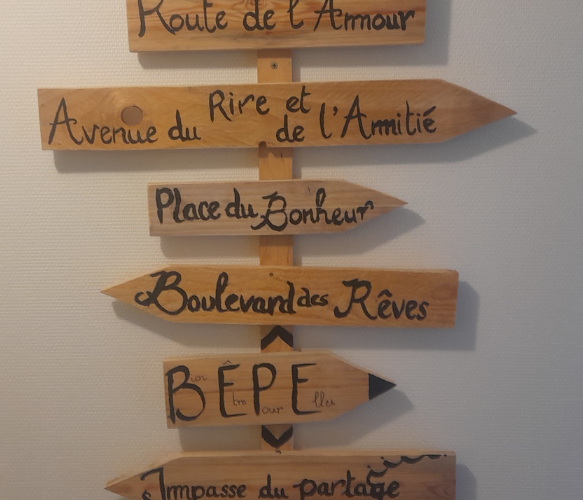 Route de l'Amour
Avenue du Rire et
de l'Amitié
Place du Bonheur
Boulevard des Rêves
B Ê P E
Impasse du partage